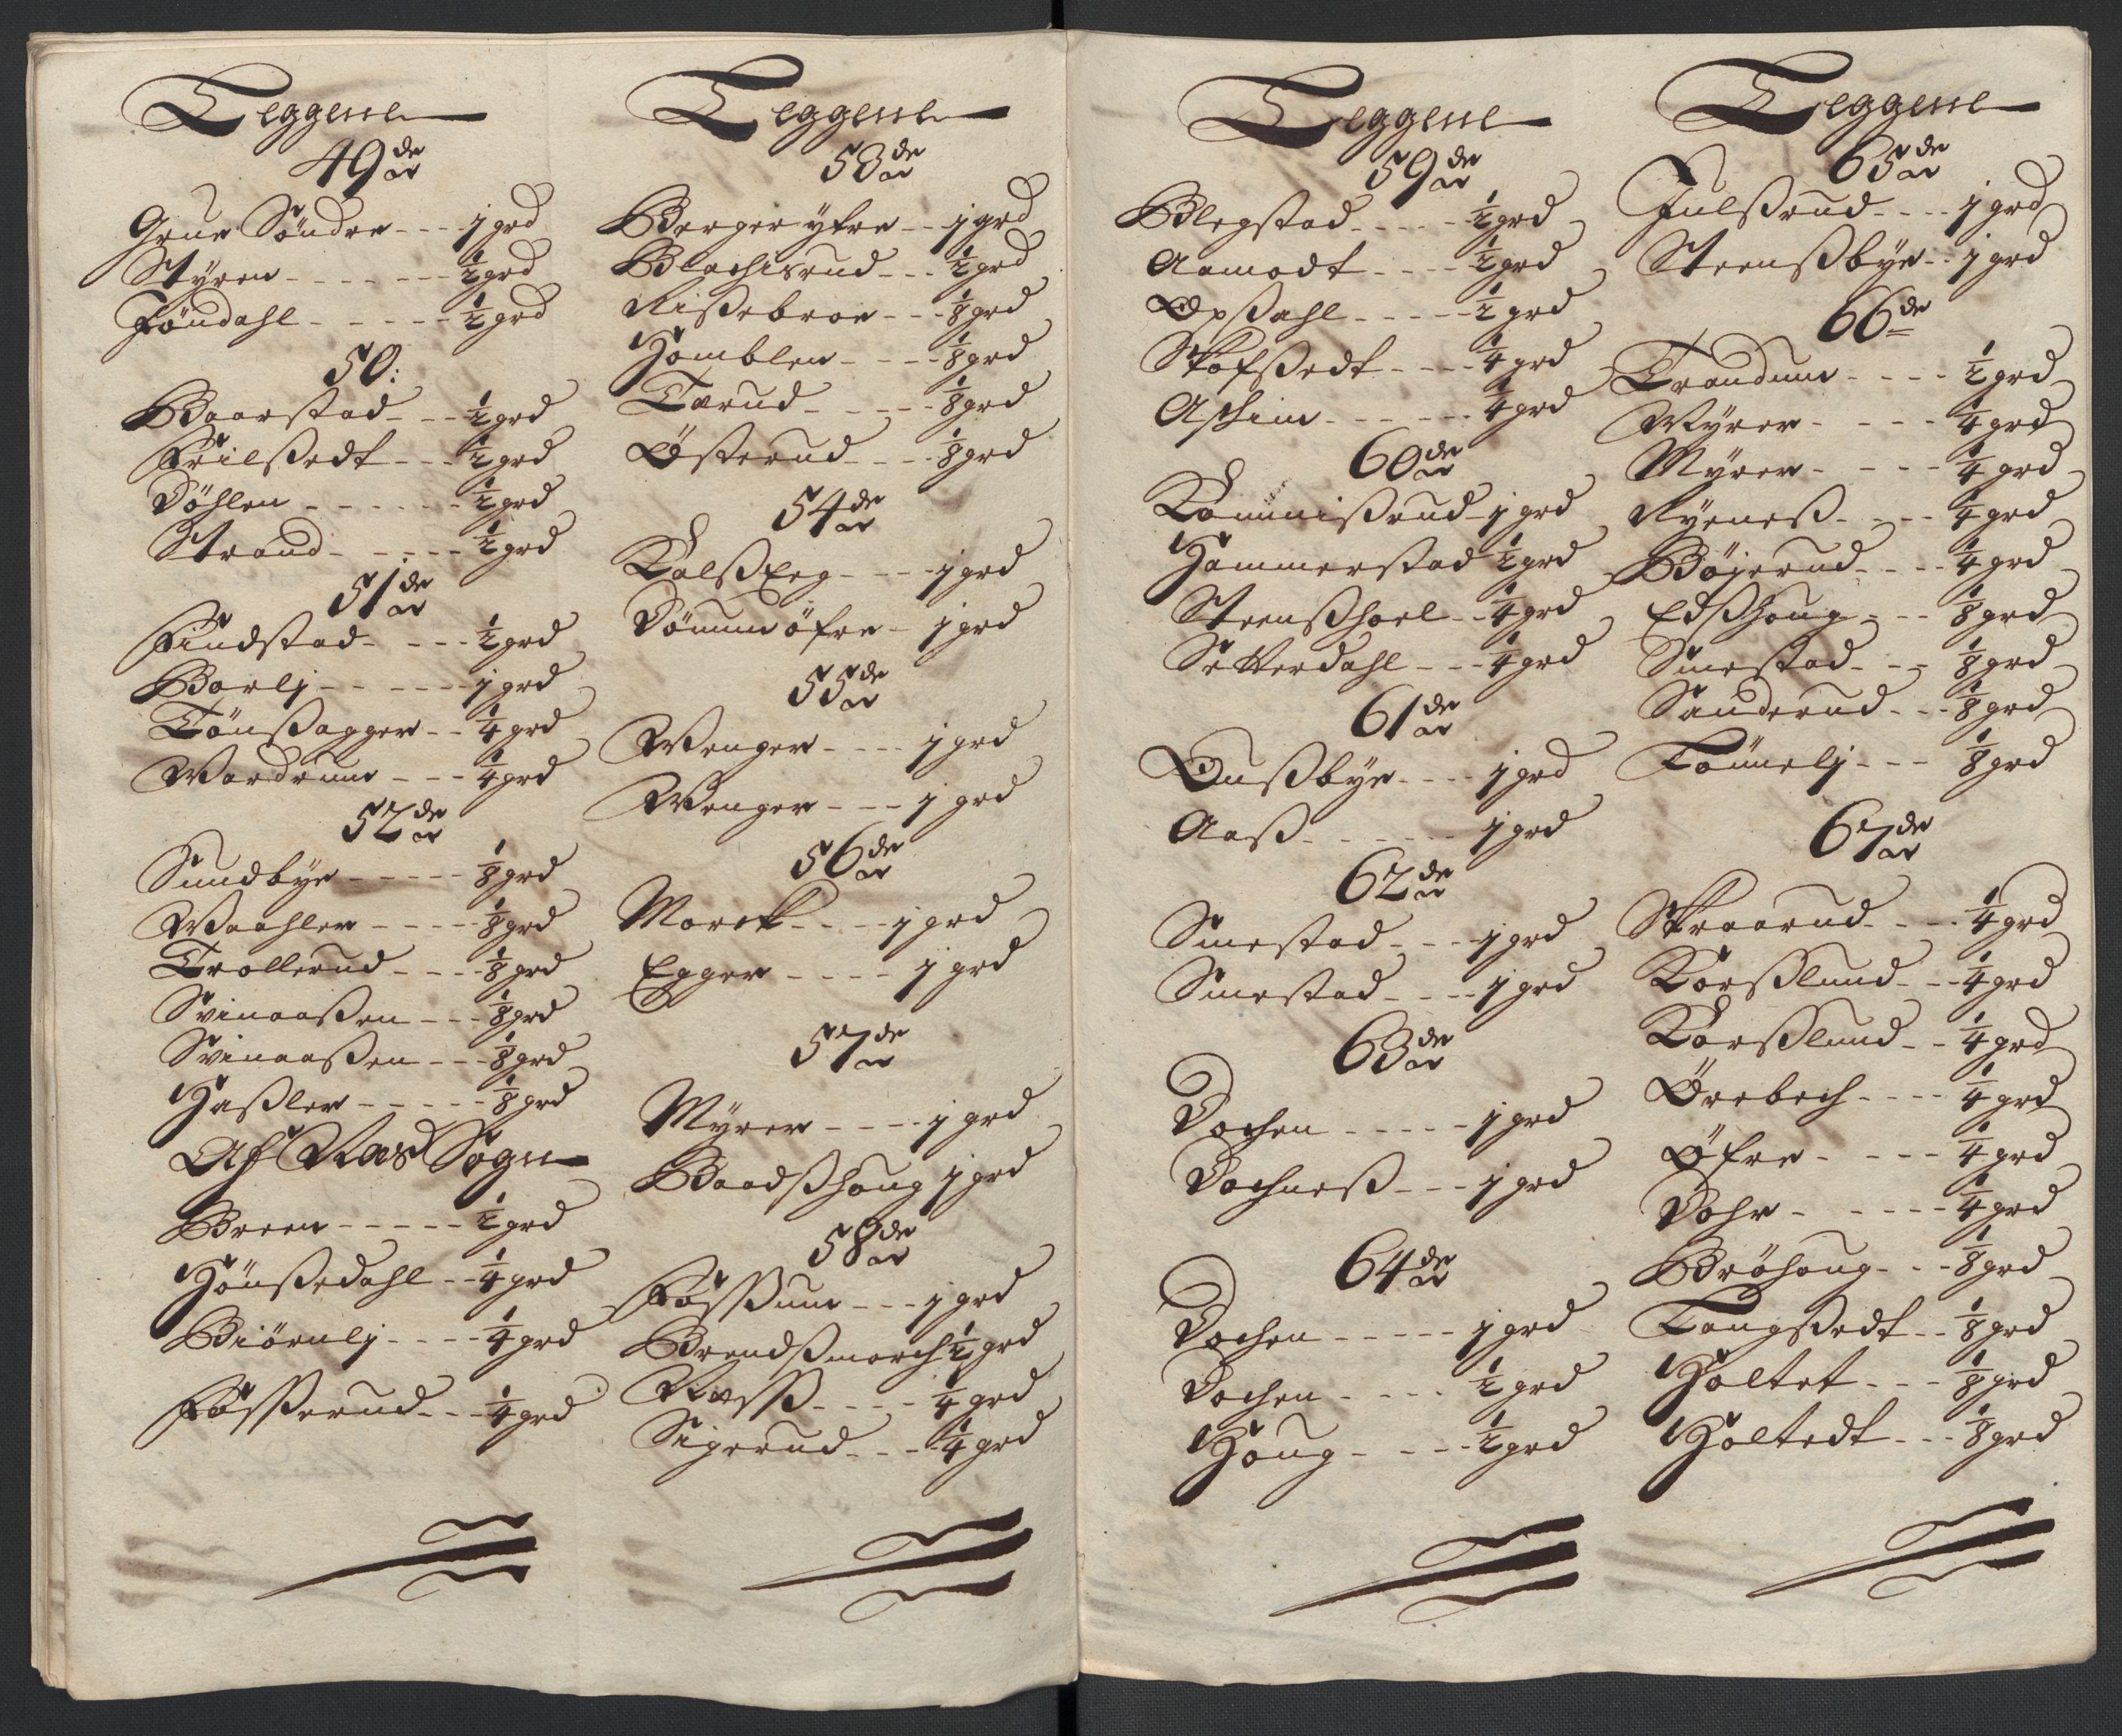 Leggene
49de
Grue Söndre - - - 1 grd
Styren - - - - - - ½ grd
Föndahl - - - - - ½ grd
50:
Baarstad - - - ½ grd
Frilßedt - - - ½ grd
Döhlen - - - - - - ½ grd
Strand - - - - - ½ grd
51de
Findstad - - - - ½ grd
Borlj - - - - - - 1 grd
Tönßagger - - ¼ grd
Wardrum - - - ¼ grd
52de
Sundbye - - - - - ⅛ grd
Waahler - - - - ⅛ grd
Trollerud - - - - ⅛ grd
Svinaaßen - - - ⅛ grd
Svinaaßen - - - ⅛ grd
Haßler - - - - - ⅛ grd
Af Næs Sogn
Breen - - - - - ½ grd
Hönßedahl - - ¼ grd
Biörnlj - - - - ¼ grd
Fössßerud - - - ¼ grd
Leggene
53de
Berger yfre - - 1 grd
Blachisrud - - - ½ grd
Rißebroe - - - ⅛ grd
Homblen - - - - ⅛ grd
Tærud - - - - - ⅛ grd
Østerud - - - - ⅛ grd
54de
Kalß Eeg - - - 1 grd
Dömme öfre - 1 grd
55de
Wenger - - - - 1 grd
Wenger - - - 1 grd
56de
Morck - - - - 1 grd
Egger - - - - 1 grd
57de
Myrer - - - - 1 grd
Baadßhoug 1 grd
58de
Fössßum - - - 1 grd
Brendßmorch ½ grd
Næsß - - - - ¼ grd
Sigerud - - - ¼ grd
Leggene
59de
Blegstad - - - - - ½ grd
Aamodt - - - - ½ grd
Opßahl - - - - - ½ grd
Skofßedt - - - - ¼ grd
Askim - - - - - - ¼ grd
60de
Kommißrud - 1 grd
Hammerstad ½ grd
Steenßhoel - - ¼ grd
Setterdahl - - - ¼ grd
61de
Außbye - - - - 1 grd
Aaß - - - - - - 1 grd
62de
Smestad - - - 1 grd
Smestad - - - - 1 grd
63de
Dochen - - - - - 1 grd
Dochneß - - - 1 grd
64de
Dochen - - - - - 1 grd
Dochen - - - - ½ grd
Houg - - - - ½ grd
Leggene
65de
Julßrud - - - - 1 grd
Steenßbye - - 1 grd
66de
Trandum - - - - ½ grd
Myrer - - - - ¼ grd
Myrer - - - - ¼ grd
Ryeneß - - - - ¼ grd
Böjerud - - - - ¼ grd
Edßhoug - - - ⅛ grd
Smestad - - - ⅛ grd
Sanderud - - - ⅛ grd
Tömelj - - - ⅛ grd
67de
Skraarud - - - - ¼ grd
Korßlund - - - ¼ grd
Korßlund - - ¼ grd
Örebech - - - - ¼ grd
Öfre - - - - ¼ grd
Dohr - - - - - ¼ grd
Bröhoug - - - ⅛ grd
Tangßedt - - ⅛ grd
Holtet - - - - ⅛ grd
Holtedt - - - ⅛ grd